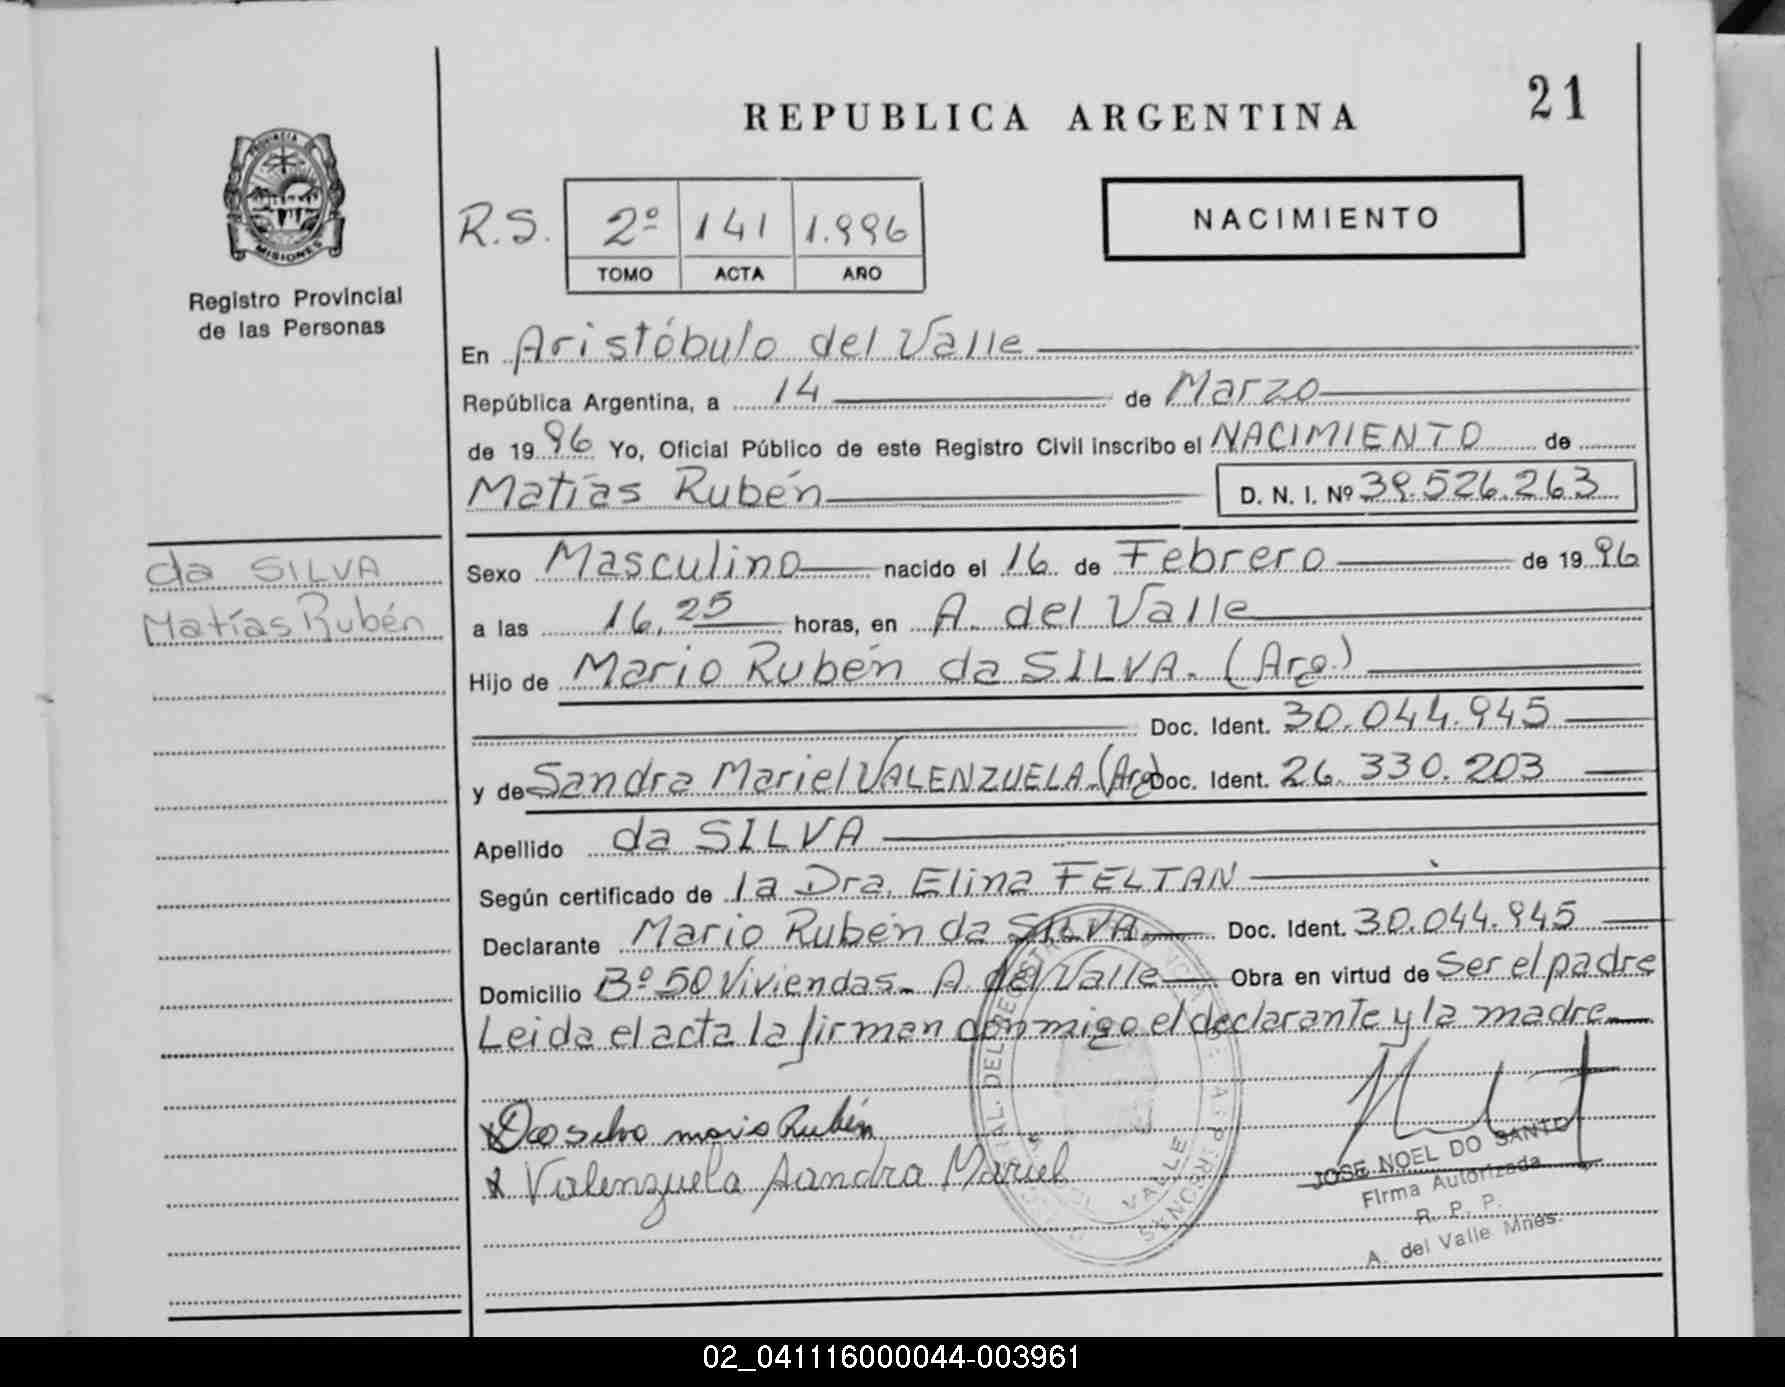 REPUBLICA ARGENTINA
21
PROVINCIA
MISIONES
Registro Provincial
de las Personas
R.S.
2º 141 1.996
TOMO ACTA AÑO
NACIMIENTO
En Aristóbulo del Valle
República Argentina, a 14 de Marzo
de 1996 Yo, Oficial Público de este Registro Civil inscribo el NACIMIENTO de
Matías Rubén D. N. I. Nº 39.526.263
da SILVA
Matías Rubén
Sexo Masculino nacido el 16 de Febrero de 1996
a las 16,25 horas, en A. del Valle
Hijo de Mario Rubén da SILVA. (Arg.)
Doc. Ident. 30.044.945
y de Sandra Mariel VALENZUELA.(Arg) Doc. Ident. 26.330.203
Apellido da SILVA
Según certificado de la Dra. Elina FELTAN
Declarante Mario Rubén da SILVA. Doc. Ident. 30.044.945
Domicilio Bº 50 Viviendas. A del Valle Obra en virtud de Ser el padre
Leida el acta la firman conmigo el declarante y la madre
Da silva mario Rubén
Valenzuela Sandra Mariel
JOSE NOEL DO SANTO
Firma Autorizada
R. P. P.
A. del Valle Mnes.
02_041116000044-003961